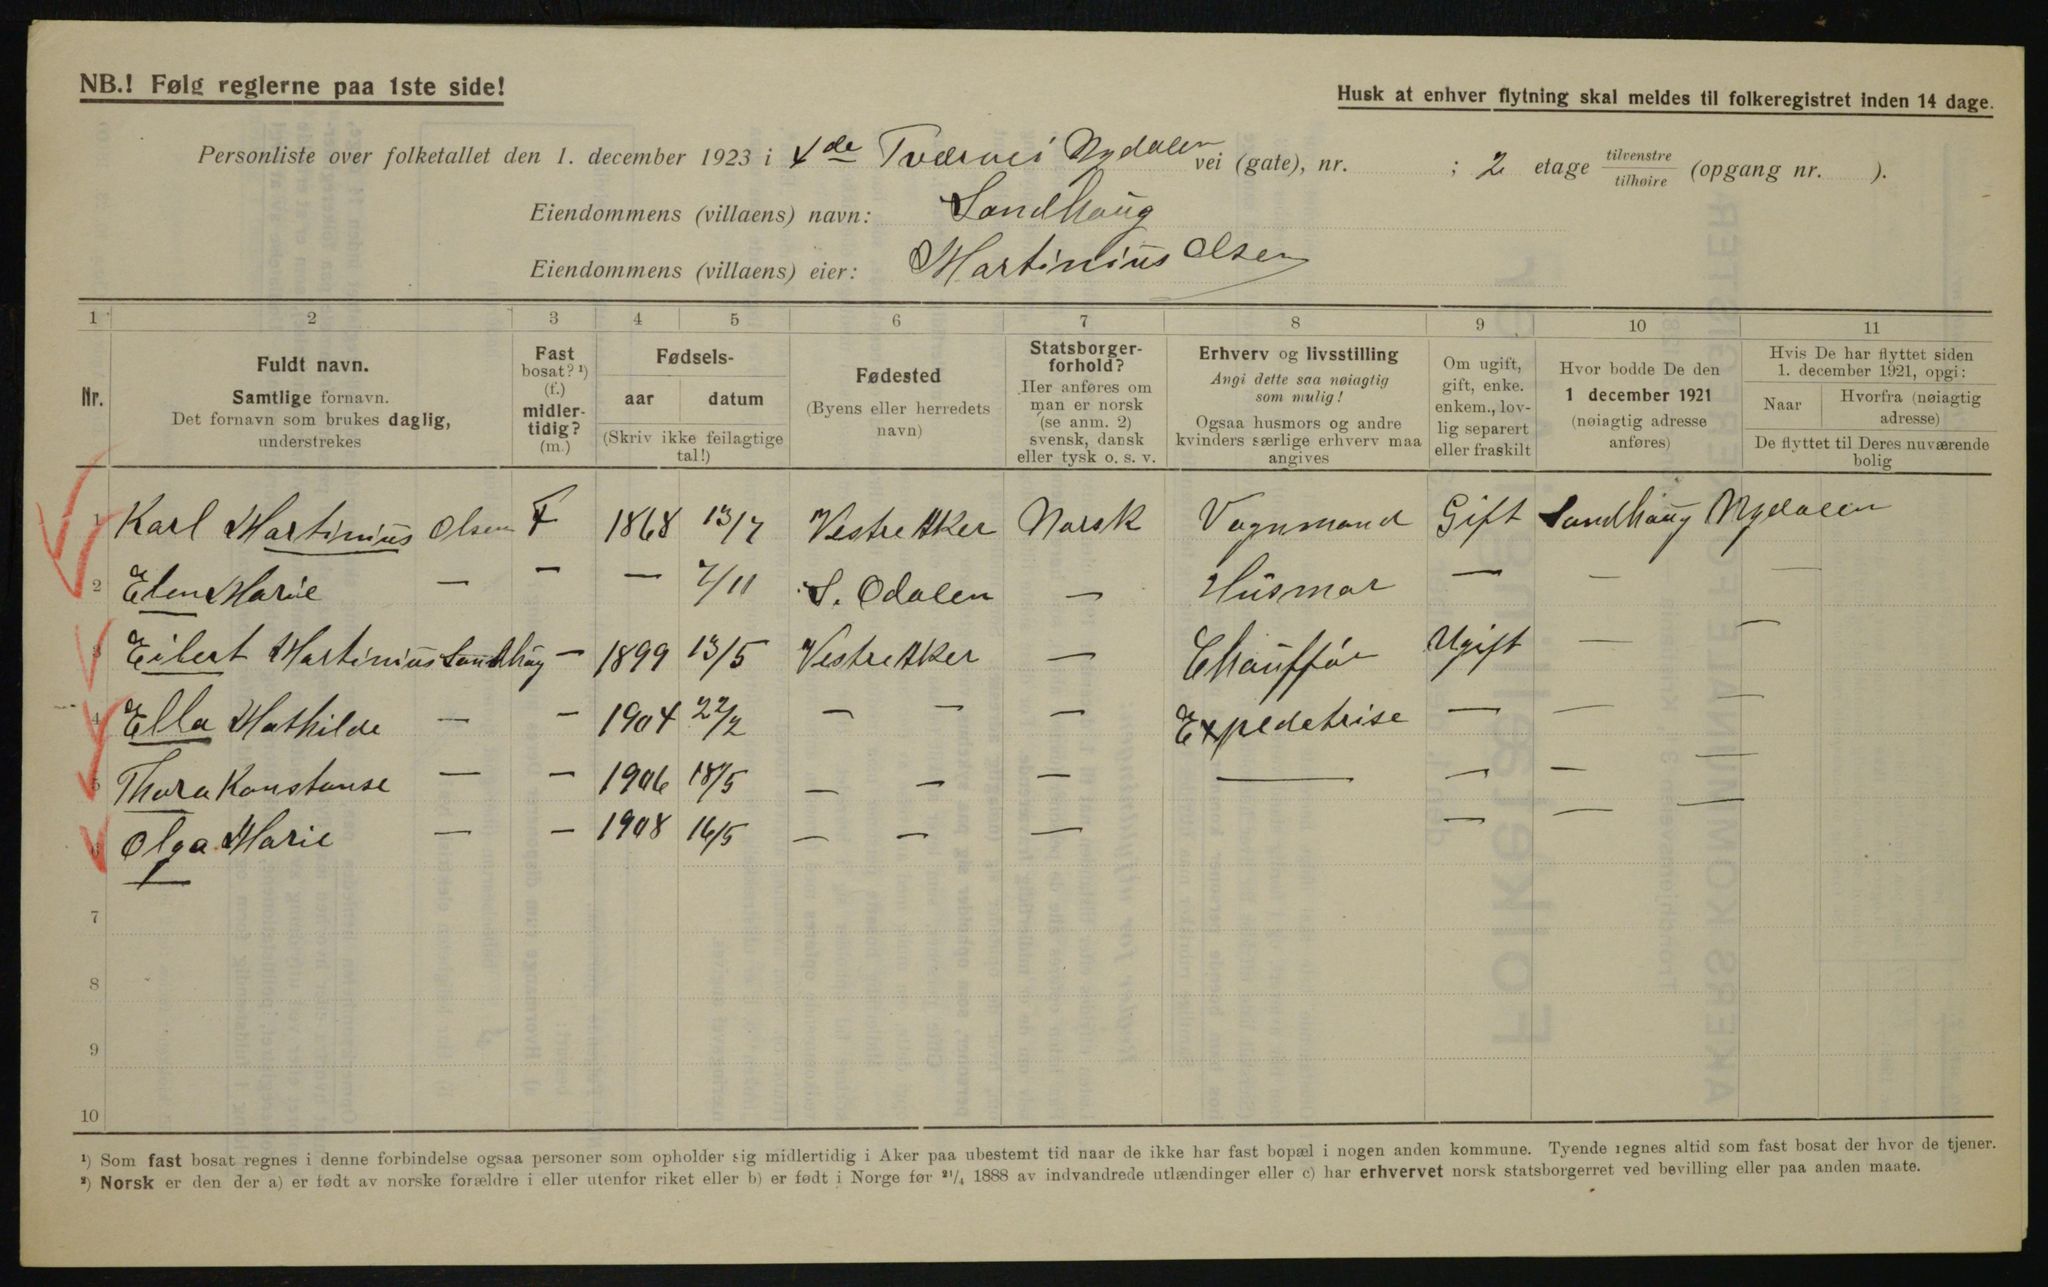 NB.! Følg reglerne paa 1ste side!
Husk at enhver flytning skal meldes til folkeregistret inden 14 dage.
Personliste over folketallet den 1. december 1923 i 4de Tværvei Nydalen vei (gate), nr. ; 2 etage tilvenstre/tilhøire (opgang nr. ).
Eiendommens (villaens) navn: Sandhaug
Eiendommens (villaens) eier: Martinius Olsen
1 2 3 4 5 6 7 8 9 10 11
Nr.
Fuldt navn.
Samtlige fornavn.
Det fornavn som brukes daglig,
understrekes
Fast
bosat? ¹)
(f.)
midler-
tidig?
(m.)
Fødsels-
aar datum
(Skriv ikke feilagtige
tal!)
Fødested
(Byens eller herredets
navn)
Statsborger-
forhold?
Her anføres om
man er norsk
(se anm. 2)
svensk, dansk
eller tysk o. s. v.
Erhverv og livsstilling
Angi dette saa nøiagtig
som mulig!
Ogsaa husmors og andre
kvinders særlige erhverv maa
angives
Om ugift,
gift, enke.
enkem., lov-
lig separert
eller fraskilt
Hvor bodde De den
1 december 1921
(nøiagtig adresse
anføres)
Hvis De har flyttet siden
1. december 1921, opgi:
Naar Hvorfra (nøiagtig
adresse)
De flyttet til Deres nuværende
bolig
1 Karl Martinius Olsen F 1868 13/7 Vestre Aker Norsk Vognmand Gift Sandhaug Nydalen
2 Elen Marie — — — 7/11 S. Odalen — Husmor — — —
3 Eilert Martinius Sandhaug — 1899 13/5 Vestre Aker — Chauffør Ugift — —
4 Ella Mathilde — — 1904 22/2 — — — Expedetrise — — —
5 Thora Konstanse — — 1906 18/5 — — — — — — —
6 Olga Marie — — 1908 16/5 — — — — — —
7
8
9
10
¹) Som fast bosat regnes i denne forbindelse ogsaa personer som opholder sig midlertidig i Aker paa ubestemt tid naar de ikke har fast bopæl i nogen anden kommune. Tyende regnes altid som fast bosat der hvor de tjener.
²) Norsk er den der a) er født av norske forældre i eller utenfor riket eller b) er født i Norge før ²¹/₄ 1888 av indvandrede utlændinger eller c) har erhvervet norsk statsborgerret ved bevilling eller paa anden maate.